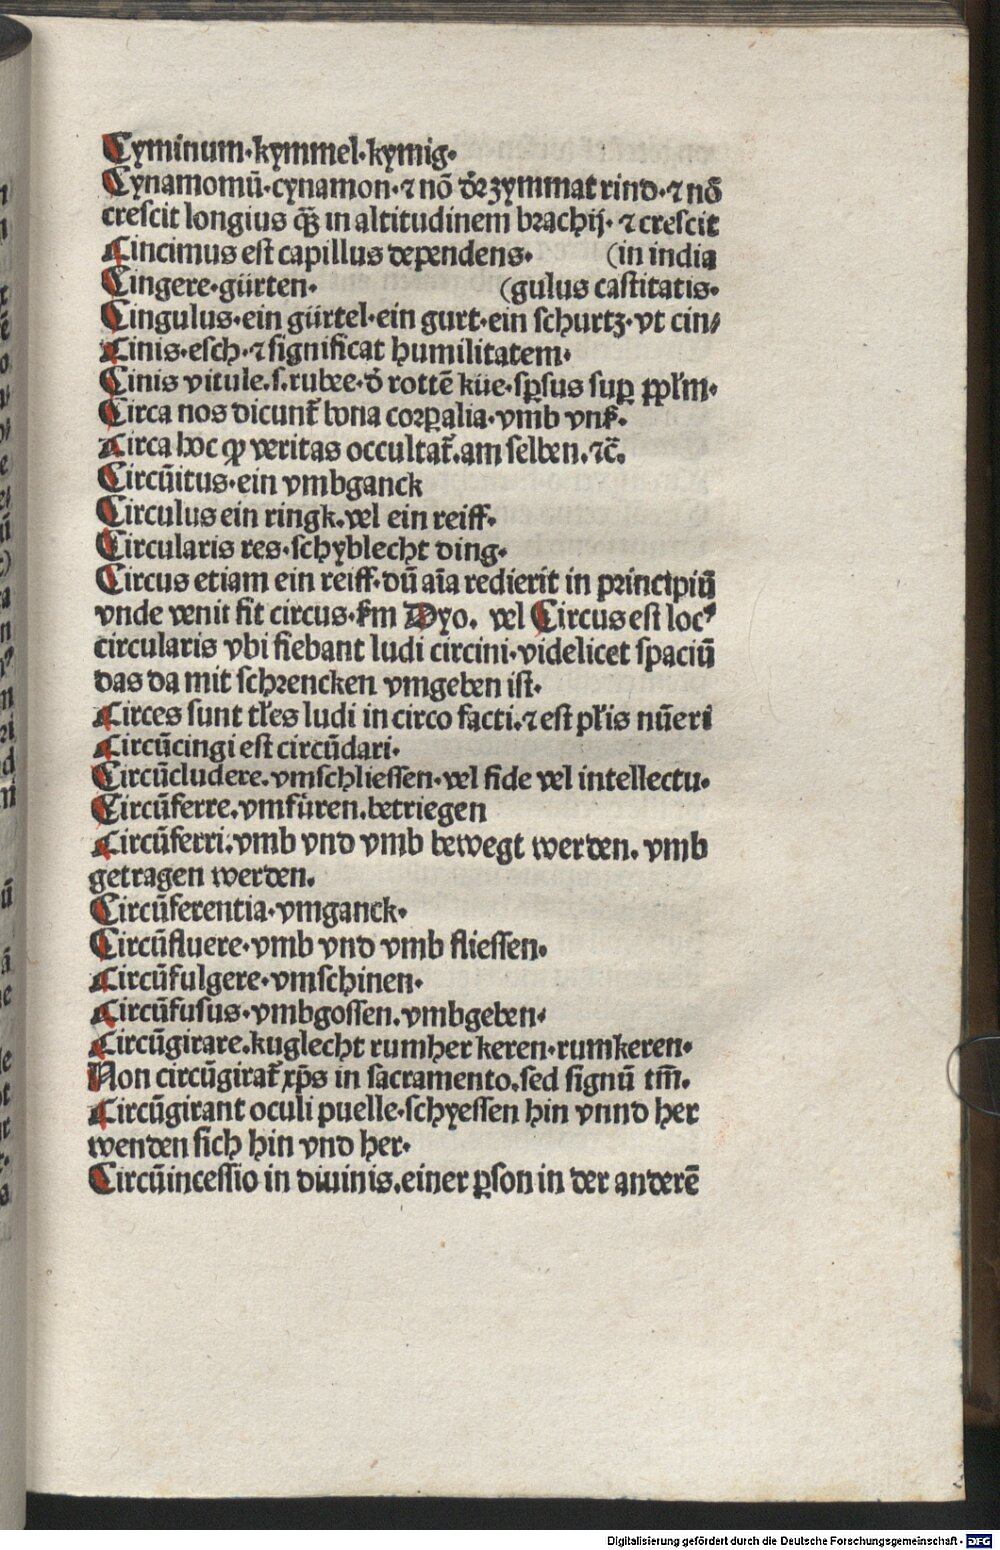 Cyminum·kymmel·kymig·
Cynamomū·cynamon·⁊ nō d̄r zymmat rind·⁊ nō
crescit longius qꝫ in altitudinem brachij·⁊ crescit
Cincimus est capillus dependens· (in india
Cingere·gürten· (gulus castitatis·
Cingulus·ein gürtel·ein gurt·ein schurtz·vt cin⸗
Cinis·esch·⁊ significat humilitatem·
Cinis vitule.s.rubee·d̄ rottē küe·sꝑsus suꝑ ꝑpl̄m·
Circa nos dicunt̄ bona corꝑalia·vmb vnß·
Circa hoc ꝙ veritas occultat̄.am selben.⁊c̄.
Circūitus·ein vmbganck
Circulus ein ringk.vel ein reiff·
Circularis res·schyblecht ding·
Circus etiam ein reiff·dū aīa redierit in principiū
vnde venit fit circus·ẜm Dyo. vel Circus est locꝰ
circularis vbi fiebant ludi circini·videlicet spaciū
das da mit schrencken vmgeben ist·
Circes sunt tl̄es ludi in circo facti.⁊ est pl̄is nūeri
Circūcingi est circūdari·
Circūcludere.vmschliessen·vel fide vel intellectu·
Circūferre.vmfüren.betriegen
Circūferri.vmb vnd vmb bewegt werden. vmb
getragen werden.
Circūferentia·vmganck·
Circūfluere·vmb vnd vmb fliessen·
Circūfulgere·vmschinen·
Circūfusus·vmbgossen.vmbgeben·
Circūgirare.kuglecht rumher keren·rumkeren·
Non circūgirat̄ xp̄s in sacramento.sed signū tm̄.
Circūgirant oculi puelle·schyessen hin vnnd her
wenden sich hin vnd her·
Circūincessio in diuinis.einer ꝑson in der anderē
Digitalisierung gefördert durch die Deutsche Forschungsgemeinschaft - DFG